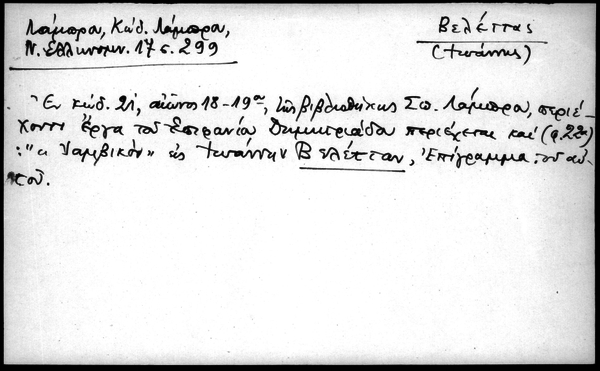 Λάμπρα, Κώδ. Λάμπρα,
Ν. Ελληνομν. 17 σ. 299
Βελέττας
(Ιωάννης)
Ἐν κώδ. 21, αἰῶνος 18-19ου, τῆς βιβλιοθήκης Σπ. Λάμπρα, περιέ-
χοντι ἔργα τοῦ Δημητριάδα περιέχεται καὶ (φ. 22α)
Ἰαμβικόν» εἰς Ιωάννην Βελέτταν, Ἐπίγραμμα τοῦ αὐ-
τοῦ.